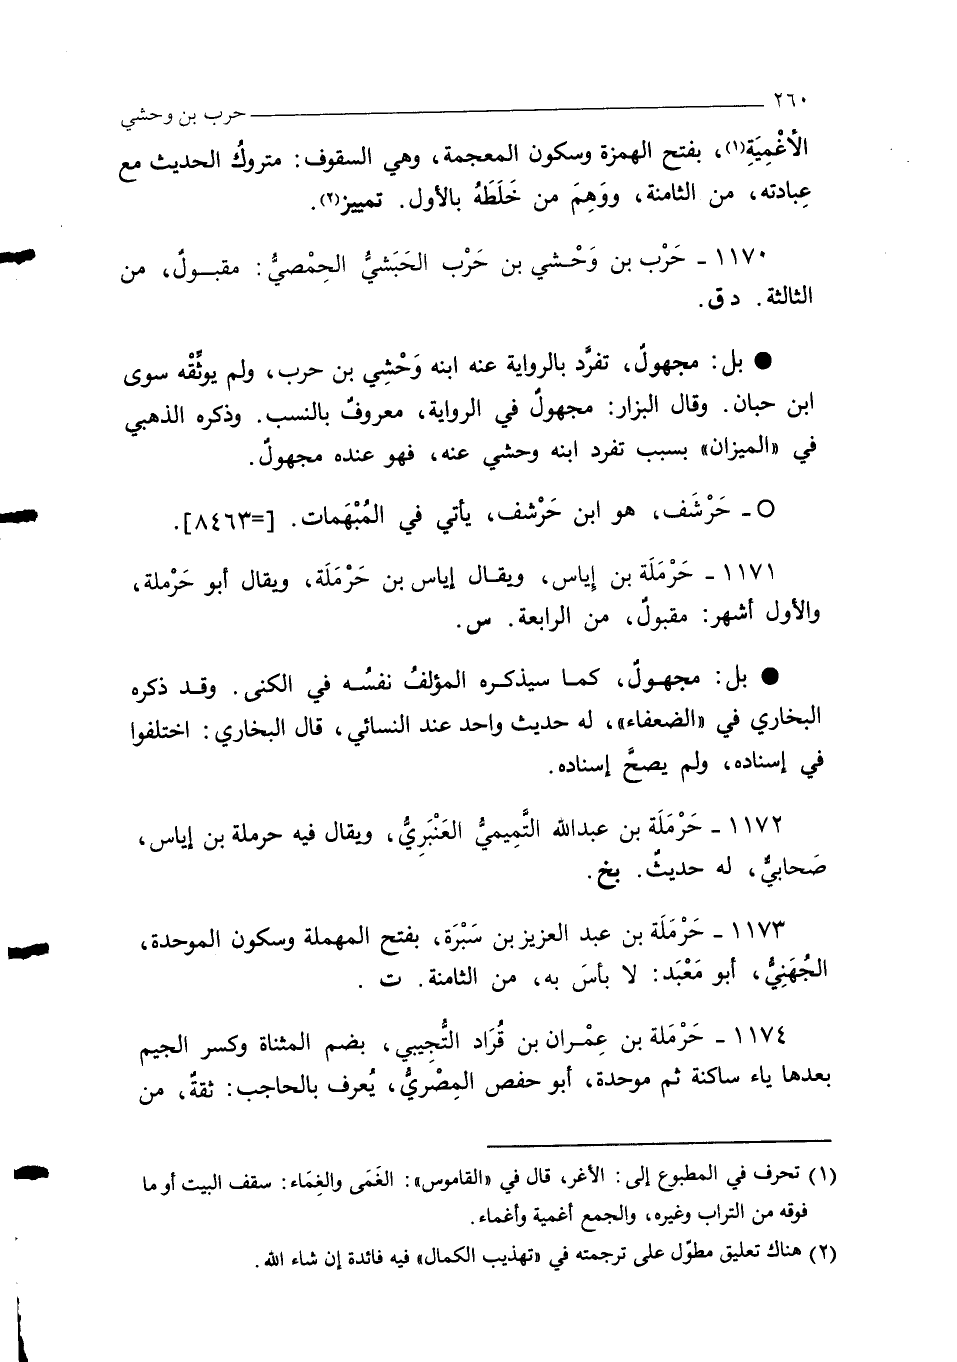 ٢٦٠ حرب بن وحشي
الأَغْمِيَةِ(١)، بفتح الهمزة وسكون المعجمة، وهي السقوف: متروكُ الحديث مع
عِبادته، من الثامنة، ووَهِمَ من خَلَطَهُ بالأول. تمييز(٢).
١١٧٠ ـ حَرْب بن وَحْشي بن حَرْب الحَبَشيُّ الحِمْصيُّ: مقبولٌ، من
الثالثة. د ق.
● بل: مجهولٌ، تفرَّد بالرواية عنه ابنه وَحْشِي بن حرب، ولم يوثِّقْه سوى
ابن حبان. وقال البزار: مجهولٌ في الرواية، معروفٌ بالنسب. وذكره الذهبي
في «الميزان» بسبب تفرد ابنه وحشي عنه، فهو عنده مجهولٌ.
○ ـ حَرْشَف، هو ابن حَرْشف، يأتي في المُبْهَمات. [=٨٤٦٣].
١١٧١ ـ حَرْمَلَة بن إياس، ويقال إياس بن حَرْمَلَة، ويقال أبو حَرْملة،
والأول أشهر: مقبولٌ، من الرابعة. س.
● بل: مجهولٌ، كما سيذكره المؤلفُ نفسُه في الكنى. وقد ذكره
البخاري في «الضعفاء»، له حديث واحد عند النسائي، قال البخاري: اختلفوا
في إسناده، ولم يصحَّ إسناده.
١١٧٢ ـ حَرْمَلَة بن عبدالله التَّمِيميُّ العَنْبَرِيُّ، ويقال فيه حرملة بن إياس،
صَحابيٌّ، له حديثٌ. بخ.
١١٧٣ ـ حَرْمَلَة بن عبد العزيز بن سَبْرَة، بفتح المهملة وسكون الموحدة،
الجُهَنِيُّ، أبو مَعْبَد: لا بأسَ به، من الثامنة. ت .
١١٧٤ ـ حَرْمَلة بن عِمْران بن قُرَاد التُّجِيبي، بضم المثناة وكسر الجيم
بعدها ياء ساكنة ثم موحدة، أبو حفص المِصْريُّ، يُعرف بالحاجب: ثقةٌ، من
(١) تحرف في المطبوع إلى: الأغر، قال في «القاموس»: الغَمَى والغِمَاء: سقف البيت أو ما
فوقه من التراب وغيره، والجمع أغمية وأغماء.
(٢) هناك تعليق مطوّل على ترجمته في «تهذيب الكمال» فيه فائدة إن شاء الله.